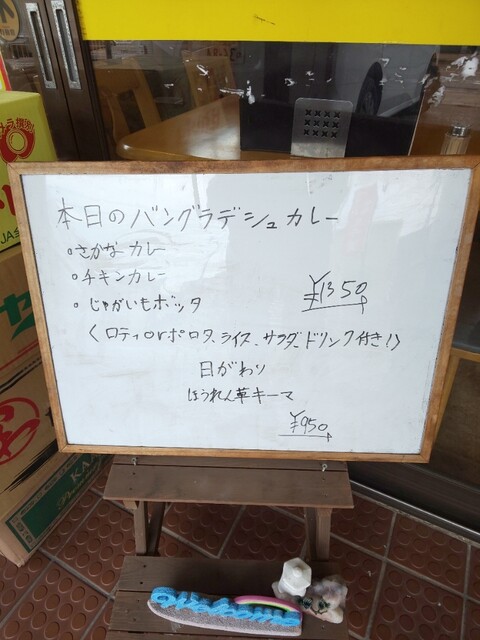 本日のバングラデシュカレー
○さかなカレー
○チキンカレー
・じゃがいもボッタ
¥1350
〈ロティorポロタ、ライス、サラダ、ドリンク付き!〉
日がわり
ほうれん草キーマ
¥950